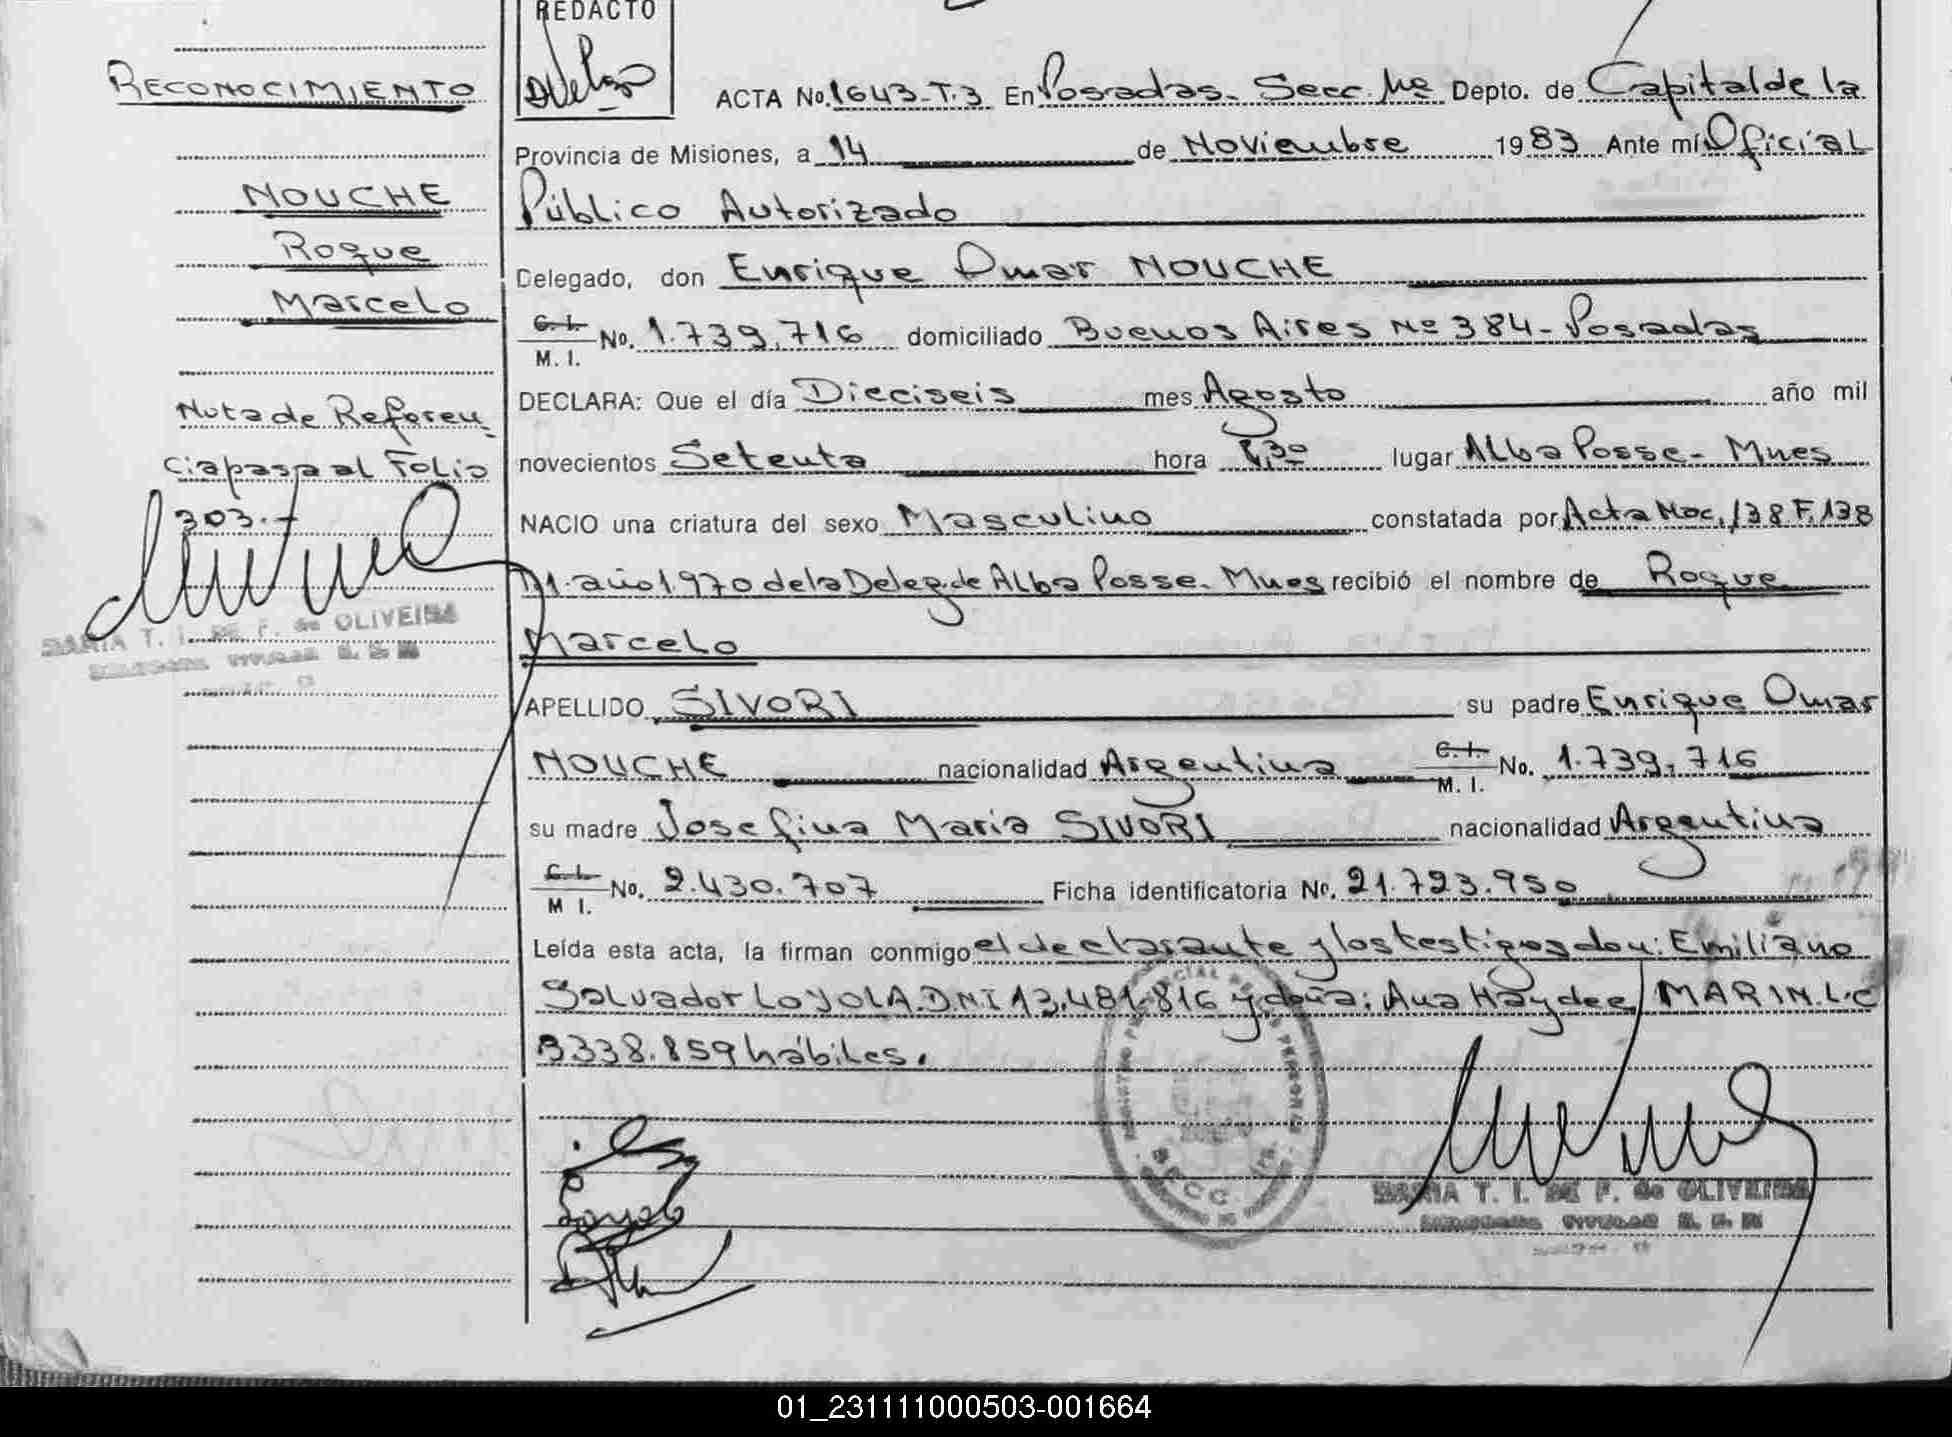 REDACTO
RECONOCIMIENTO
ACTA No. 1643-T.3 En Posadas- Secc. Mº Depto. de Capital de la
Provincia de Misiones, a 14 de Noviembre 1983 Ante mí Oficial
NOUCHE
Público Autorizado
Roque
Delegado, don Enrique Omar NOUCHE
Marcelo
C. I.
M. I. No. 1.739.716 domiciliado Buenos Aires Nº 384- Posadas
Nota de Referen
DECLARA: Que el día Dieciseis mes Agosto año mil
cia pasa al Folio
novecientos Setenta hora 1,30 lugar Alba Posse- Mnes
303.-
NACIO una criatura del sexo Masculino constatada por Acta Nac. 138 F. 138
año 1.970 de la Deleg. de Alba Posse- Mnes recibió el nombre de Roque
MARIA T. I. DE F. de OLIVEIRA
Marcelo
APELLIDO SIVORI su padre Enrique Omar
NOUCHE nacionalidad Argentina C. I. M. I. No. 1.739.716
su madre Josefina Maria SIVORI nacionalidad Argentina
C. I.
M I. No. 2.430.707 Ficha identificatoria No. 21.723.950
Leída esta acta, la firman conmigo el declarante y los testigos don: Emiliano
Salvador LOYOLA. D.N.I 13.481.816 y doña: Ana Haydee MARIN. L.C
3338.859 hábiles.
Loyola
MARIA T. I. DE F. de OLIVEIRA
01_231111000503-001664